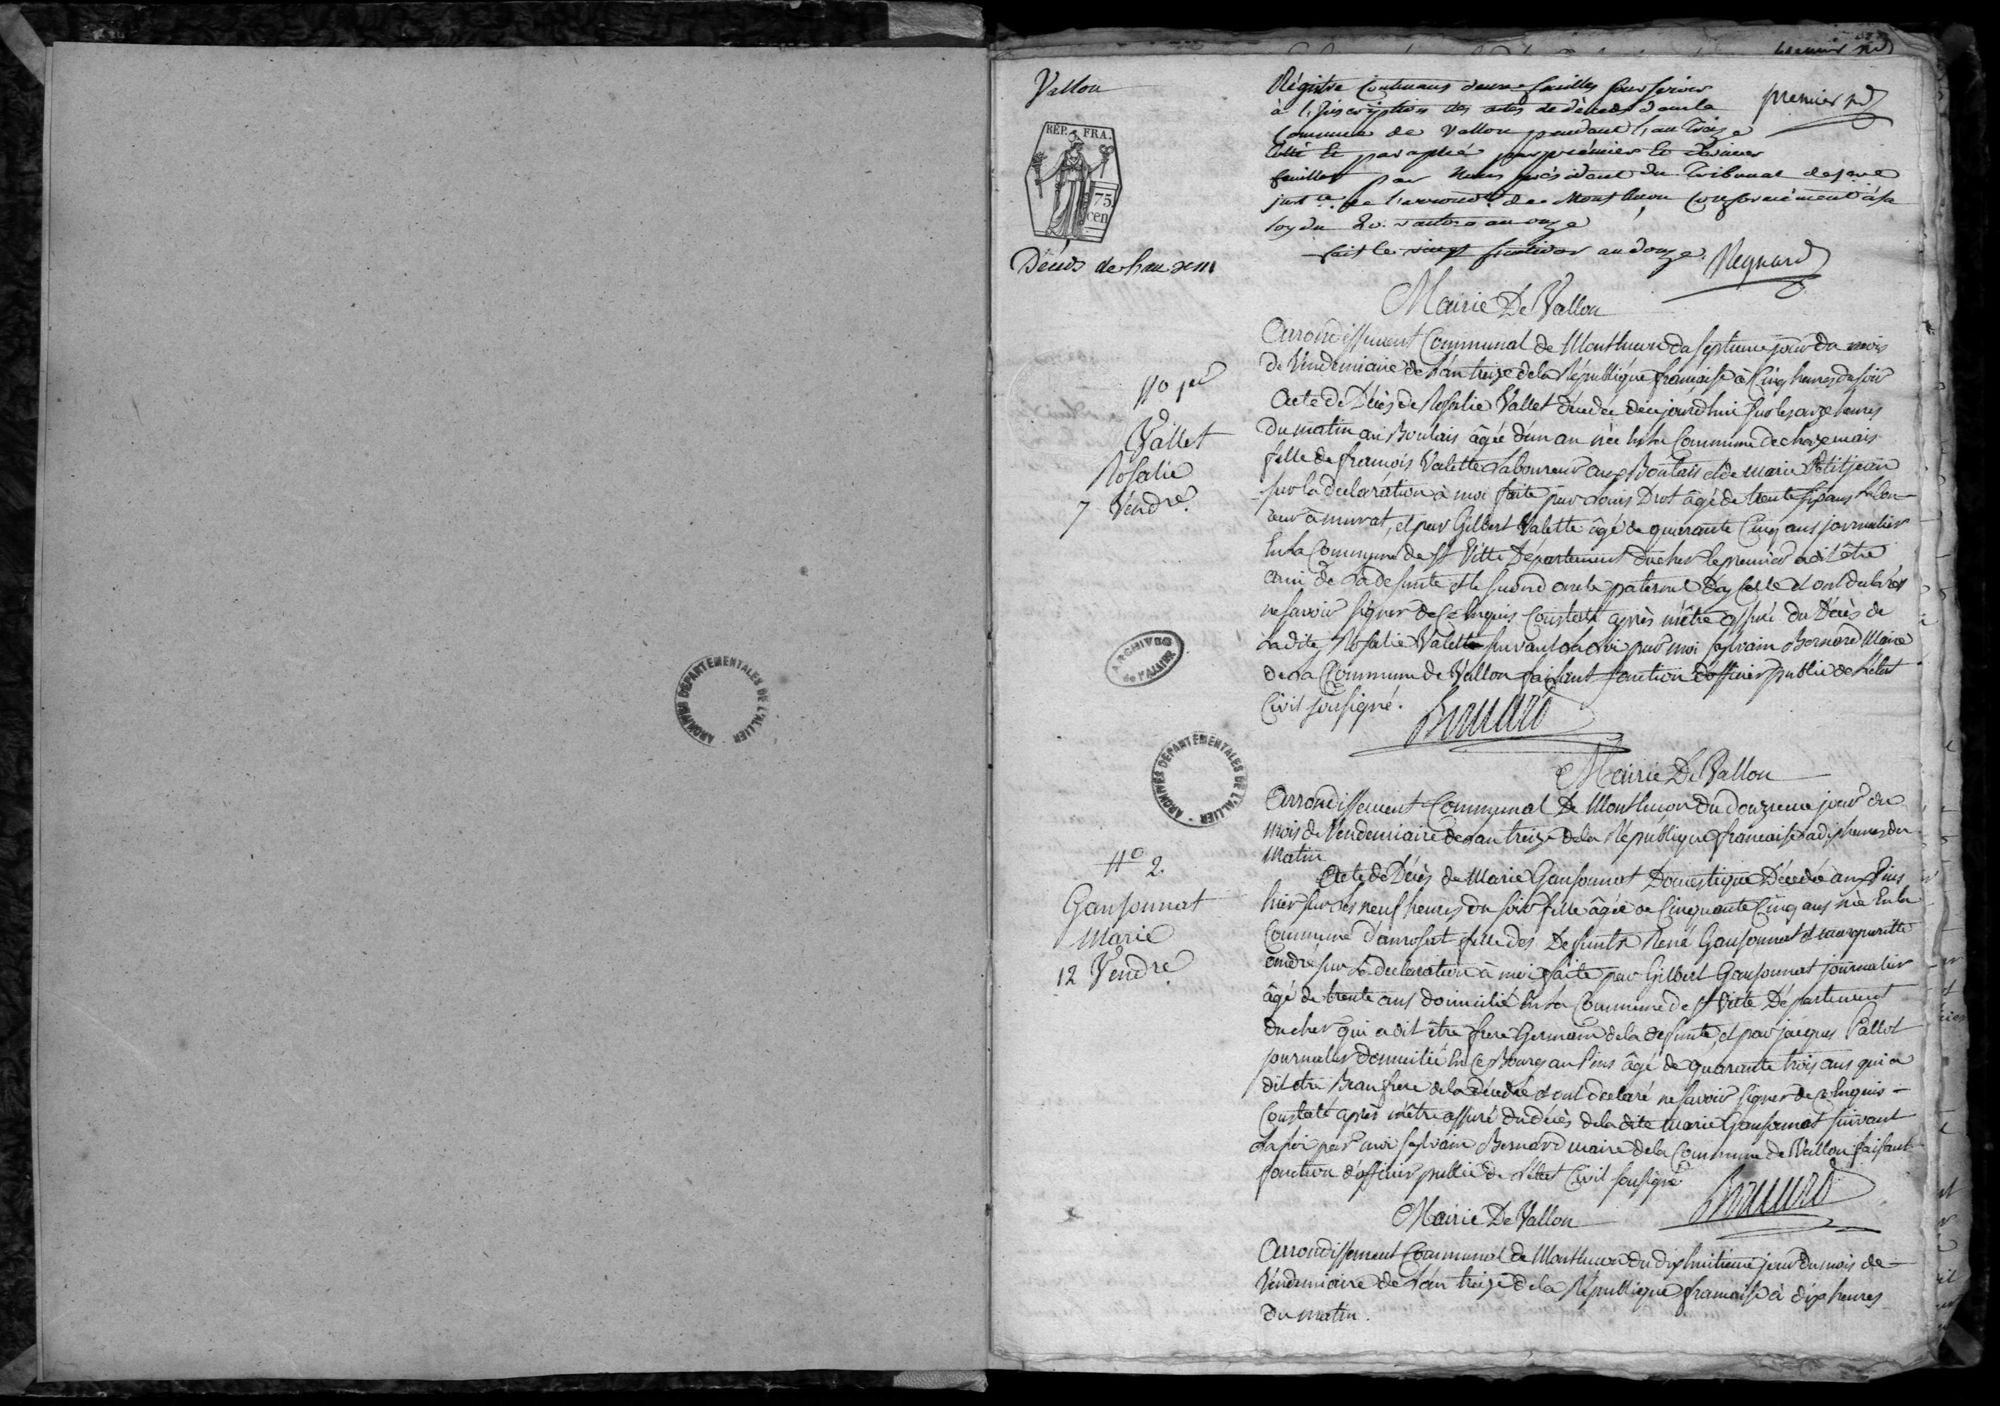 Vallon
RÉP. FRA.
75
cen
Décès de l'an XIII
Régistre Contenant douze feuilles pour servir
à l'Inscription des actes de décès dans la
Commune de Vallon pendant l'an treize
Cotté Et paraphé par prémier Et dernier
feuillet par Nous président du Tribunal de pre
just.ce de l'arrond.t de Montluçon Conformément à la
loy du 20. an onze
fait le vingt fructidor an douze. Regnard
premier
Mairie De Vallon
Arrondissement Communal de Montluçon du septieme jour du mois
de Vendemiaire de L'an treize de la République française à Cinq heures du soir
No 1er
Vallet
Rosalie
7 Vendre.
Acte de Décès de Rosalie Vallet décédée de cejourd'hui sur les onze heures
du matin au Boulais âgée d'un an née En la Commune de chazemais
fille de françois Valette Laboureur aux Boulais et de Marie Petitjean
sur la declaration à moi faite par Louis Drot âgé de trente six ans Labou-
reur à murat, et par Gilbert Valette âgé de quarante Cinq ans journalier
En la Commune de St Vitte Département du cher le premier a dit être
ami de La defunte et le second oncle paternel d'icelle et ont declarés
ne savoir signer de ce Enquis Constaté après m'être assuré du Décès de
Ladite Rosalie Valette suivant La Loi par moi sylvain Bernard Maire
de La Commune de Vallon faisant fonction d'officier public de L'Etat
Civil soussigné.
Bernard
ARCHIVES
de l'ALLIER
ARCHIVES DÉPARTEMENTALES DE L'ALLIER
ARCHIVES DÉPARTEMENTALES DE L'ALLIER
Mairie De Vallon
Arrondissement Communal De Montluçon du douzieme jour du
Mois de Vendemiaire de L'an treize de la République française a dix heures du
Matin
No 2.
Gaufonnat
Marie
12 Vendre.
Acte de Décès de Marie Gaufonnat Domestique Décédée aux Pins
hier sur les neuf heures du soir fille âgée de Cinquante Cinq ans née En la
Commune d'ainay fille des Defunts René Gaufonnat et marguerite
andré sur La declaration à moi faite par Gilbert Gaufonnat journalier
âgé de trente ans domicilié En La Commune de St Vitte Département
du cher qui a dit être frere Germain de la defunte, et par jacques Pallot
journalier domicilié En ce Bourg au Pins âgé de quarante trois ans qui a
dit etre Beau frere de la Décédée et ont declaré ne savoir signer de ce Enquis -
Constaté après m'être assuré du décès de la dite Marie Gaufonnat suivant
La loi par moi sylvain Bernard maire de la Commune de Vallon faisant
fonction d'officier public de L'Etat Civil soussigné
Bernard
Mairie De Vallon
Arrondissement Communal de Montluçon du dix huitieme jour du mois de
Vendemiaire de L'an treize de la République française à dix heures
du matin.